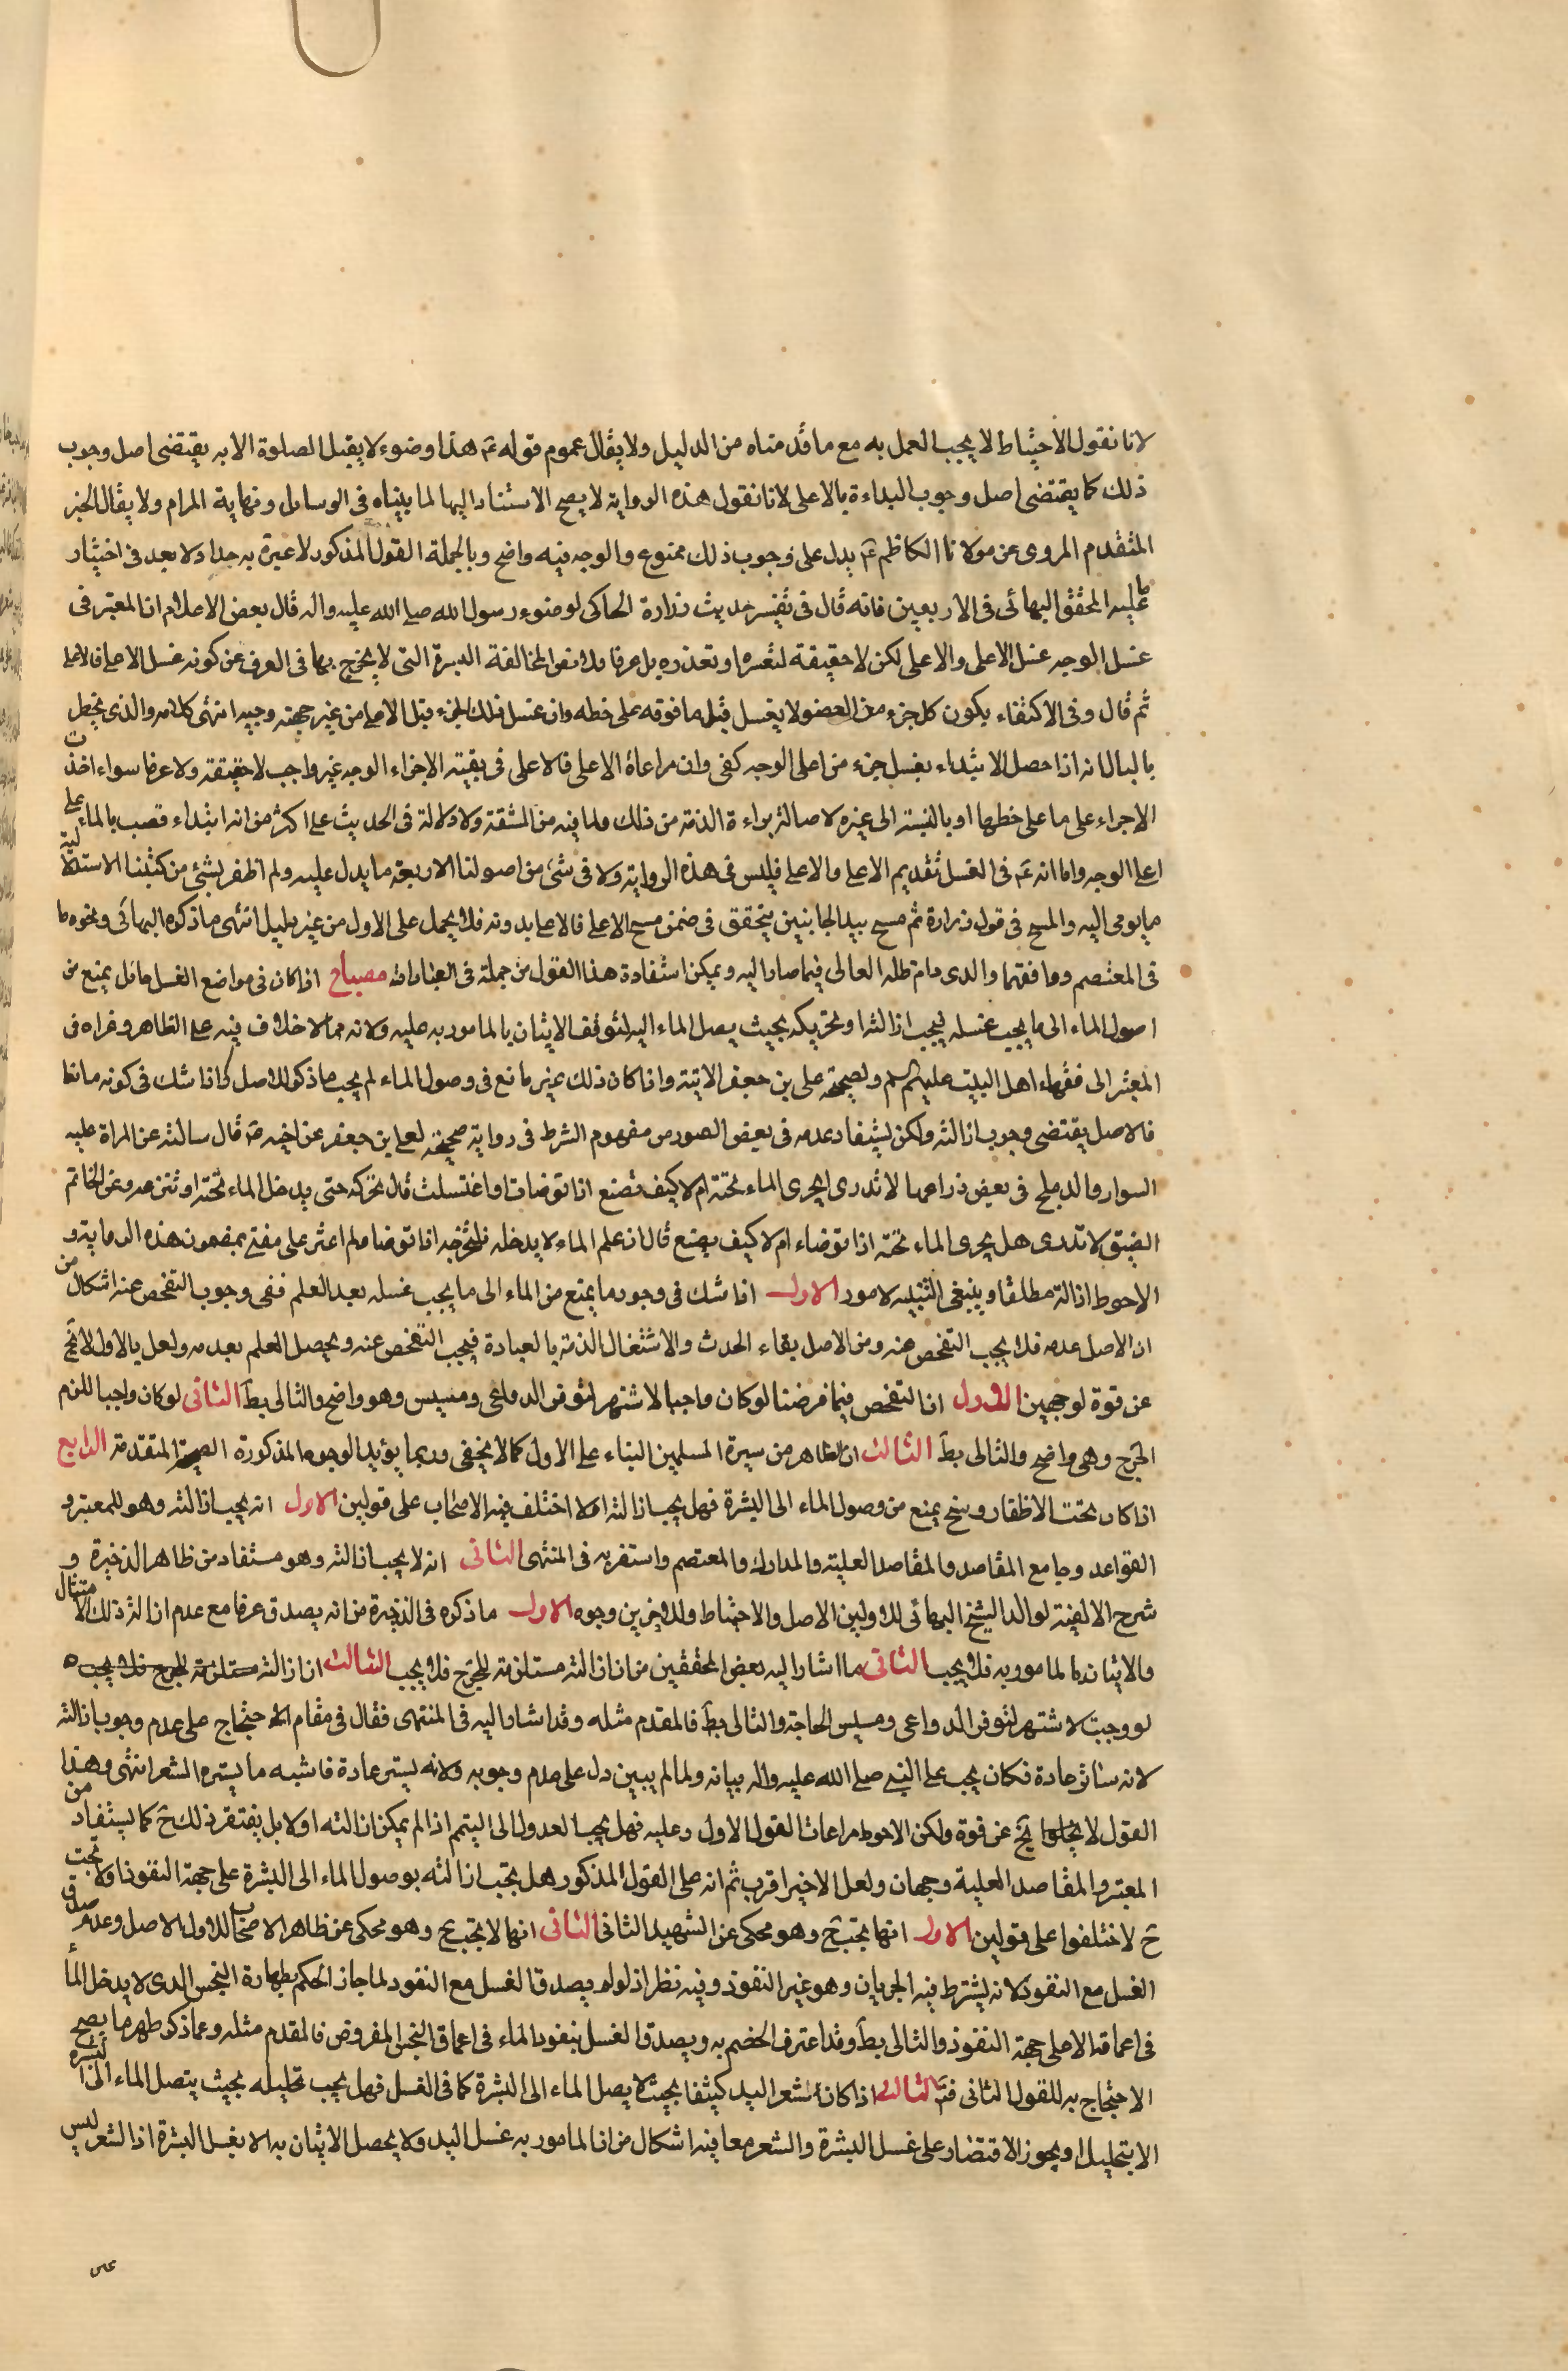 لانا نقول الاحتياط لا يجب العمل به مع ما قدمناه من الدليل ولا يقال عموم قوله عَ هذا وضوء لا يقبل الصلوة الا به يقتضى اصل وجوب
ذلك كما يقتضى اصل وجوب البداءة بالاعلى لانا نقول هذه الرواية لا يصح الاستناد اليها لما بيناه فى الوسائل ونهاية المرام ولا يقال الخبر
المتقدم المروى عن مولانا الكاظم عَ يدل على وجوب ذلك ممنوع والوجه فيه واضح وبالجملة القول المذكور لا عبرة به جدا ولا بعد فى اختيار
ما عليه المحقق البهائى فى الاربعين فانه قال فى تفسير حديث زرارة الحاكى لوضوء رسول الله صلى الله عليه واله قال بعض الاعلام ان المعتبر فى
غسل الوجه غسل الاعلى والاعلى لكن لا حقيقة لتعسره او تعذره بل عرفا فلا تضر المخالفة اليسيرة التى لا يخرج بها فى العرف عن كونه غسل الاعلى فالاعلى
ثم قال وفى الاكتفاء بكون كل جزء من العضو لا يغسل قبل ما فوقه على خطه وان غسل ذلك الجزء قبل الاعلى من غير جهته وجيه انتهى كلامه والذى يخطر
بالبال انه اذا حصل الابتداء بغسل جزء من اعلى الوجه كفى وان مراعاة الاعلى فالاعلى فى بقية الاجزاء الوجه غير واجب لا حقيقة ولا عرفا سواء اخذت
الاجراء على ما على خطها او بالنسبة الى غيره لاصالة براءة الذمة من ذلك ولما فيه من المشقة ولا دلالة فى الحديث على اكثر من انه ابتداء فصب بالماء على
اعلى الوجه واما انه عَ فى الغسل تقديم الاعلى والاعلى فليس فى هذه الرواية ولا فى شئ من اصولنا الاربعة ما يدل عليه ولم اظفر بشئ من كتبنا الاستدلالية
ما يومى اليه والمسح فى قول زرارة ثم مسح بيد الجانبين يتحقق فى ضمن مسح الاعلى فالاعلى بدونه فلا يحمل على الاول من غير دليل انتهى ما ذكره البهائى ونحوه ما
فى المعتصم ووافقهما والدى دام ظله العالى فيما صارا اليه ويمكن استفادة هذا القول من جملة فى العبارات مصباح اذا كان فى مواضع الغسل حائل يمنع من
اصول الماء الى ما يجب غسله فيجب ازالته او تحريكه بحيث يصل الماء اليه لتوقف الاتيان بالمامور به عليه ولانه مما لا خلاف فيه على الظاهر وعزاه فى
المعتبر الى فقهاء اهل البيت عليهم السلم ولصحيحة على بن جعفر الاتية واذا كان ذلك غير مانع فى وصول الماء لم يجب ما ذكر للاصل واذا شك فى كونه مانعا
فالاصل يقتضى وجوب ازالته ولكن يستفاد عدمه فى بعض الصور من مفهوم الشرط فى رواية صحيحة لعلى بن جعفر عن اخيه عَ قال سالته عن المراة عليه
السوار والدملج فى بعض ذراعها لا تدرى ايجرى الماء تحته ام لا كيف تصنع اذا توضات او اغتسلت قال تحركه حتى يدخل الماء تحته او تنزعه وعن الخاتم
الضيق لا تدرى هل يجرى الماء تحته اذا توضاء ام لا كيف يصنع قال ان علم الماء لا يدخله فليخرجه اذا توضا ولم اعثر على مفتى بمضمون هذه الرواية و
الاحوط ازالة مطلقا وينبغى التنبيه لامور الاول اذا شك فى وجود ما يمنع من الماء الى ما يجب غسله بعد العلم ففى وجوب التفحص عنه اشكال من
ان الاصل عدمه فلا يجب التفحص عنه ومن الاصل بقاء الحدث والاشتغال الذمة بالعبادة فيجب التفحص عنه ويحصل العلم بعدمه ولعل بالاول لا تخ
عن قوة لوجهين الاول ان التفحص فيما فرضنا لو كان واجبا لاشتهر لتوفر الدواعى ومسيس وهو واضح والتالى بطَ الثانى لو كان واجبا للزم
الحرج وهى واضح والتالى بطَ الثالث ان الظاهر من سيرة المسلمين البناء على الاول كما لا يخفى وربما يؤيد الوجوه المذكورة الصحيحة المتقدمة الرابع
اذا كان تحت الاظفار وسخ يمنع من وصول الماء الى البشرة فهل يجب ازالته او لا اختلف فيه الاصحاب على قولين الاول انه يجب ازالته وهو للمعتبر و
القواعد وجامع المقاصد والمقاصد العلية والمدارك والمعتصم واستقر به فى المنتهى الثانى انه لا يجب ازالته وهو مستفاد من ظاهر الذخيرة و
شرح الالفية لوالد الشيخ البهائى للاولين الاصل والاحتياط وللاخرين وجوه الاول ما ذكره فى الذخيرة من انه يصدق عرفا مع عدم ازالة ذلك الامتثال
والاتيان بالمامور به فلا يجب الثانى ما اشار اليه بعض المحققين من ان ازالته مستلزمة للحرج فلا يجب الثالث ان ازالته مستلزمة للحرج فلا يجب
لو وجبت لاشتهر لتوفر الدواعى ومسيس الحاجة والتالى بطَ فالمقدم مثله وقد اشار اليه فى المنتهى فقال فى مقام الاحتجاج على عدم وجوب ازالته
لانه ساتر عادة فكان يجب على النبى صلى الله عليه واله بيانه ولما لم يبين دل على عدم وجوبه ولانه يستر عادة فاشبه ما يستره الشعر انتهى وهذا
القول لا يخ عن قوة ولكن الاحوط مراعات القول الاول وعليه فهل يجب العدول الى التيمم اذا لم يمكن ازالته او لا بل يفتقر ذلك حَ كما يستفاد من
المعتبر والمقاصد العلية وجهان ولعل الاخير اقرب ثم انه على القول المذكور هل تجب ازالته بوصول الماء الى البشرة على جهة النفوذ او لا تجب
حَ لاختلفوا على قولين الاول انها تجب حَ وهو محكى عن الشهيد الثانى الثانى انها لا تجب حَ وهو محكى عن ظاهر الاصحاب للاول الاصل وعدم صدق
الغسل مع النفوذ لانه يشترط فيه الجريان وهو غير النفوذ وفيه نظر اذ لو لم يصدق الغسل مع النفوذ لما جاز الحكم بطهارة النجس الذى لا يدخل الماء
فى اعماقه الا على جهة النفوذ والتالى بطَ وقد اعترف الخصم به ويصدق الغسل بنفوذ الماء فى اعماق النجس المفروض فالمقدم مثله وعما ذكر ظهر ما يصح
الاحتجاج به للقول الثانى فتَ الثالث اذا كان شعر اليد كثيفا بحيث لا يصل الماء الى البشرة كما فى الغسل فهل يجب تخليله بحيث يتصل الماء الى البشرة
الا بتخليل او يجوز الاقتصار على غسل البشرة والشعر معا فيه اشكال من ان المامور به غسل اليد ولا يحصل الاتيان به الا بغسل البشرة اذ الشعر ليس